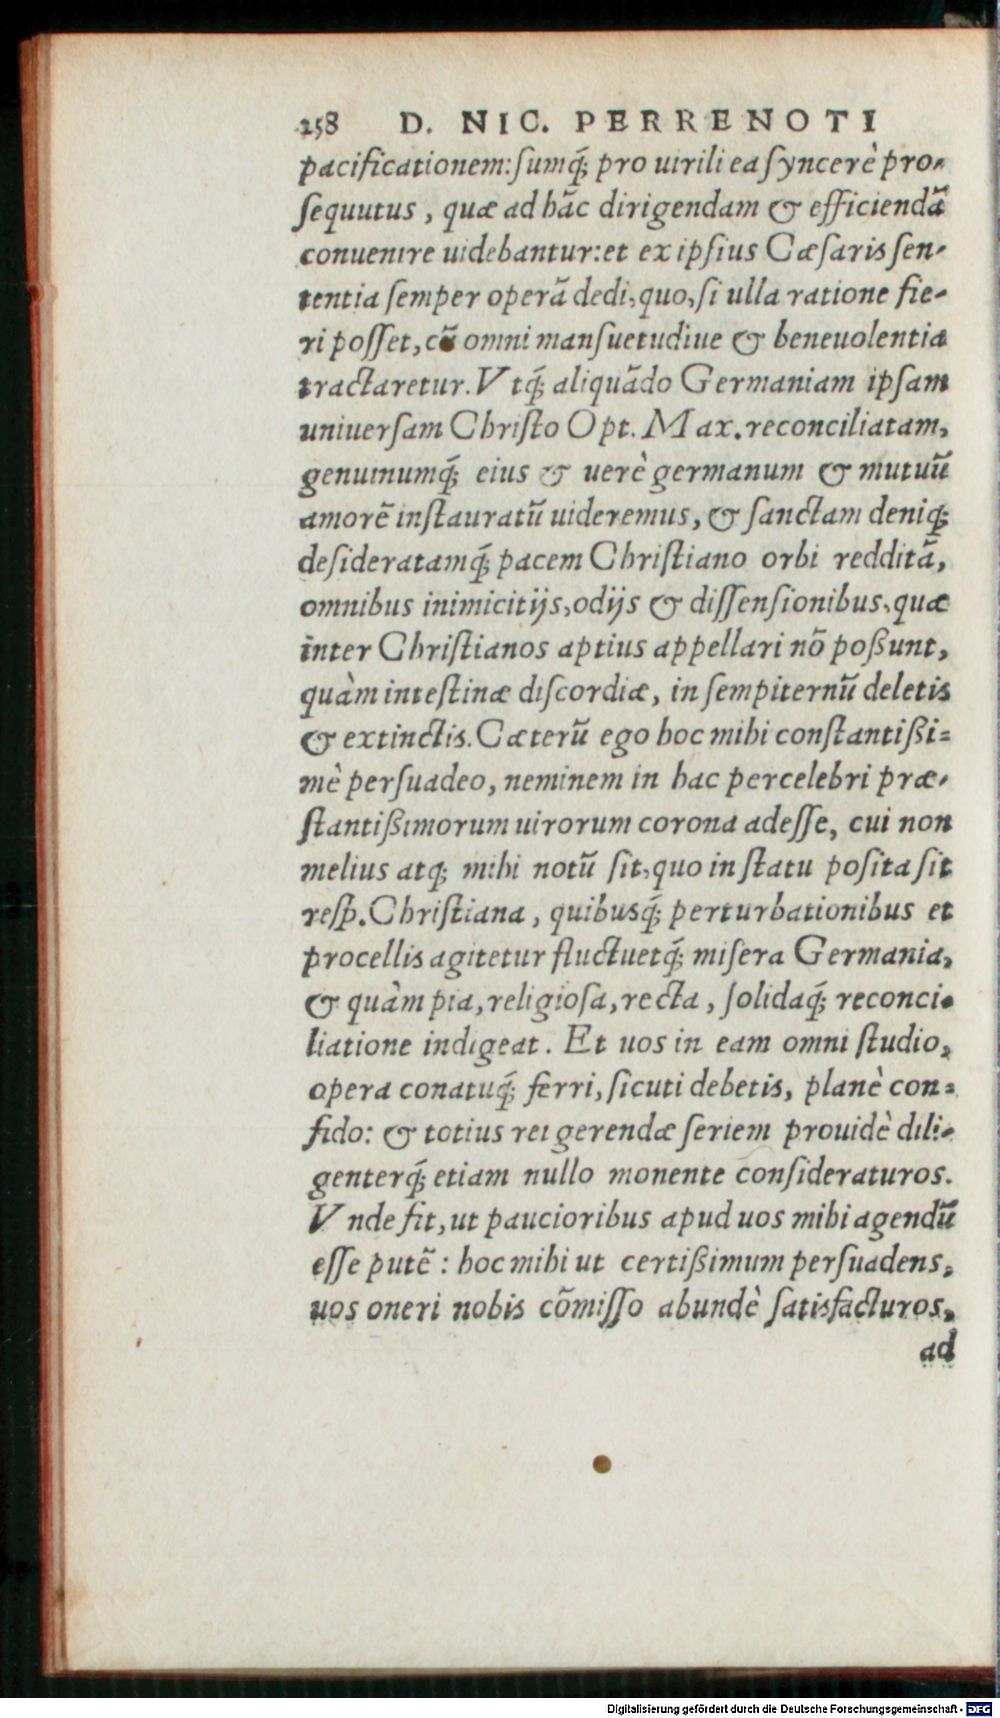 258 D. NIC. PERRENOTI
pacificationem: ſumq́; pro uirili ea ſyncerè pro-
ſequutus, quæ ad hãc dirigendam & efficiendã
conuenire uidebantur: et ex ipſius Cæſaris ſen-
tentia ſemper operã dedi, quo, ſi ulla ratione fie-
ri poſſet, cũ omni manſuetudine & beneuolentia
tractaretur. Vtq́; aliquãdo Germaniam ipſam
uniuerſam Chriſto Opt. Max. reconciliatam,
genuinumq́; eius & uerè germanum & mutuũ
amorẽ inſtauratũ uideremus, & ſanctam deniq;
deſideratamq́; pacem Chriſtiano orbi redditã,
omnibus inimicitijs, odijs & diſſenſionibus, quæ
inter Chriſtianos aptius appellari nõ poßunt,
quàm inteſtinæ diſcordiæ, in ſempiternũ deletis
& extinctis. Cæterũ ego hoc mihi conſtantißi=
mè perſuadeo, neminem in hac percelebri præ-
ſtantißimorum uirorum corona adeſſe, cui non
melius atq; mihi notũ ſit, quo in ſtatu poſita ſit
reſp. Chriſtiana, quibusq́; perturbationibus et
procellis agitetur fluctuetq́; miſera Germania,
& quàm pia, religioſa, recta, ſolidaq́; reconci-
liatione indigeat. Et uos in eam omni ſtudio,
opera conatuq́; ferri, ſicuti debetis, planè con=
fido: & totius rei gerendæ ſeriem prouidè dili-
genterq́; etiam nullo monente conſideraturos.
Vnde fit, ut paucioribus apud uos mihi agendũ
eſſe putẽ: hoc mihi ut certißimum perſuadens,
uos oneri nobis cõmiſſo abundè ſatisfacturos,
ad
Digitalisierung gefördert durch die Deutsche Forschungsgemeinschaft - DFG